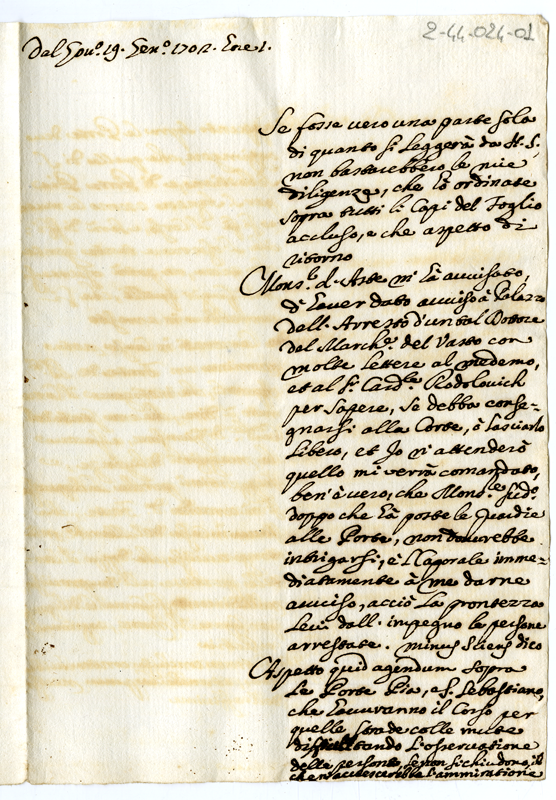 2-44-024-01
Dal Gov.º 19. Gen.º 1702. Ore 1.
Se fosse vero una parte sola
di quanto si leggerà da V. S.
non bastarebbero le mie
diligenze, che hò ordinate
sopra tutti li Capi del Foglio
accluso, e che aspetto di
ritorno
Mons.r d'Aste m'hà avvisato,
d'haver dato avviso à Palazzo
dell'Arresto d'un tal Dottore
del March.e del Vasto con
molte lettere al medemo,
et al S.r Card.le Rodolovich
per sapere, se debba conse-
gnarsi alla Corte, ò lasciarlo
libero, et Io vi attenderò
quello mi verrà comandato,
ben'è vero, che Mons.re sud.o
doppo che hà poste le guardie
alle Porte, non dovrebbe
intrigarsi, e il Caporale imme-
diatamente à me darne
avviso, acciò la prontezza
levi dall'impegno le persone
arrestate. minus sciens dico
Aspetto quid agendum sopra
le Porte Pia, e S. Sebastiano,
che havuranno il Corso per
quelle strade colle mute
difficultando l'osservatione
delle persone, se non si chiudono, il
che m'accrescerebbe l'ammiratione